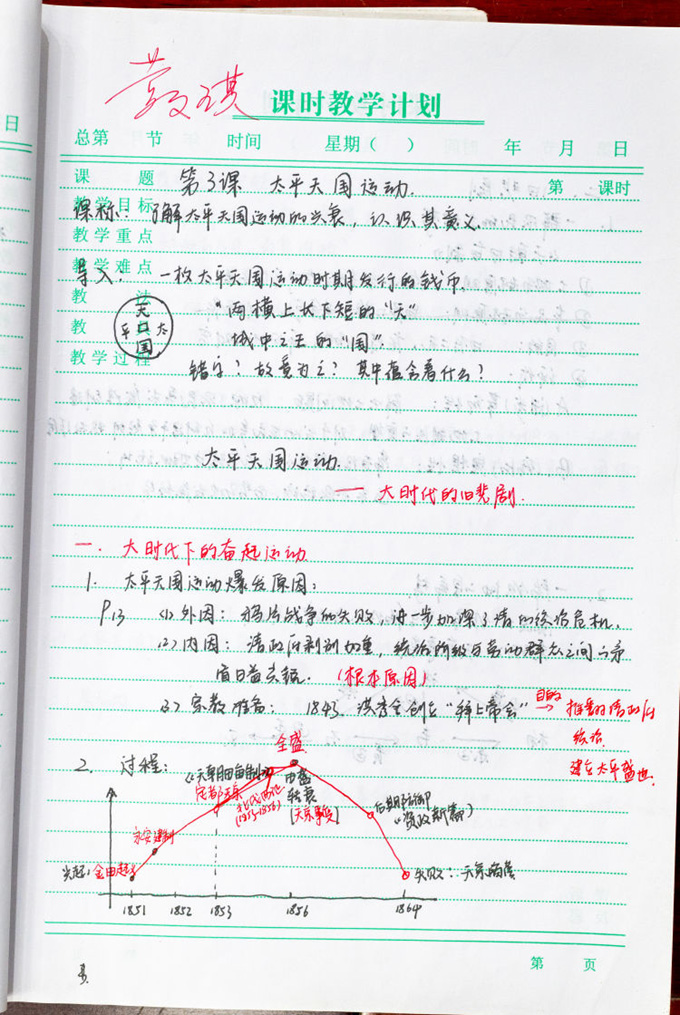 日
课时教学计划
总第 节 时间 星期（ ） 年 月 日
课 题 第3课 太平天国运动. 第 课时
教学目标
课标：了解太平天国运动的兴衰，认识其意义.
教学重点
教学难点
导入：一枚太平天国运动时期发行的钱币，
教 法
“两横上长下短的“天”
天国太平
教
域中之王的“国”.
教学过程
错字？故意为之？其中蕴含着什么？
太平天国运动.
—— 大时代的旧悲剧.
一. 大时代下的奋起运动
1. 太平天国运动爆发原因：
P13 (1) 外因：鸦片战争的失败，进一步加深了清的统治危机.
(2) 内因：清政府剥削加重，统治阶级与劳动群众之间矛
盾日益尖锐. （根本原因）
(3) 宗教准备： 1843. 洪秀全创立“拜上帝会” 目的→ 推翻清政府
统治.
建立太平盛世.
2. 过程：
全盛
《天朝田亩制》
定都天京
北伐西征
(1853-1856)
由盛
转衰
[天京事变]
后期防御
《资政新篇》
永安建制
兴起：金田起义
失败：天京陷落
1851 1852 1853 1856 1864
第 页